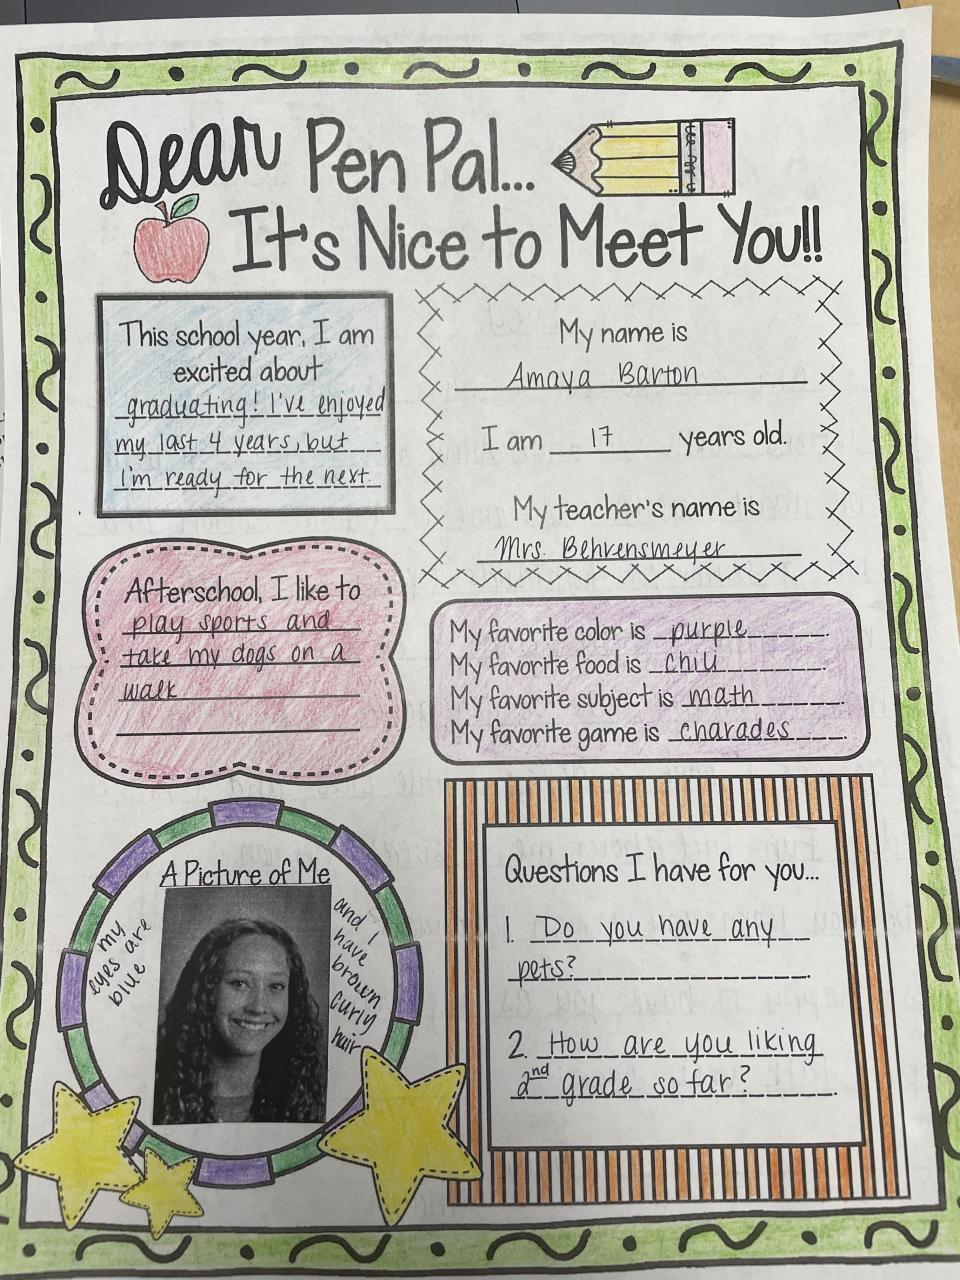 Dear Pen Pal...
It's Nice to Meet You!!
This school year, I am
excited about
graduating! I've enjoyed
my last 4 years, but
I'm ready for the next.
My name is
Amaya Barton
I am 17 years old.
My teacher's name is
Mrs. Behrensmeyer
Afterschool, I like to
play sports and
take my dogs on a
walk
My favorite color is purple.
My favorite food is chili.
My favorite subject is math.
My favorite game is charades.
A Picture of Me
my
eyes are
blue
and I
have
brown
curly
hair
Questions I have for you...
1. Do you have any
pets?
2. How are you liking
2nd grade so far?